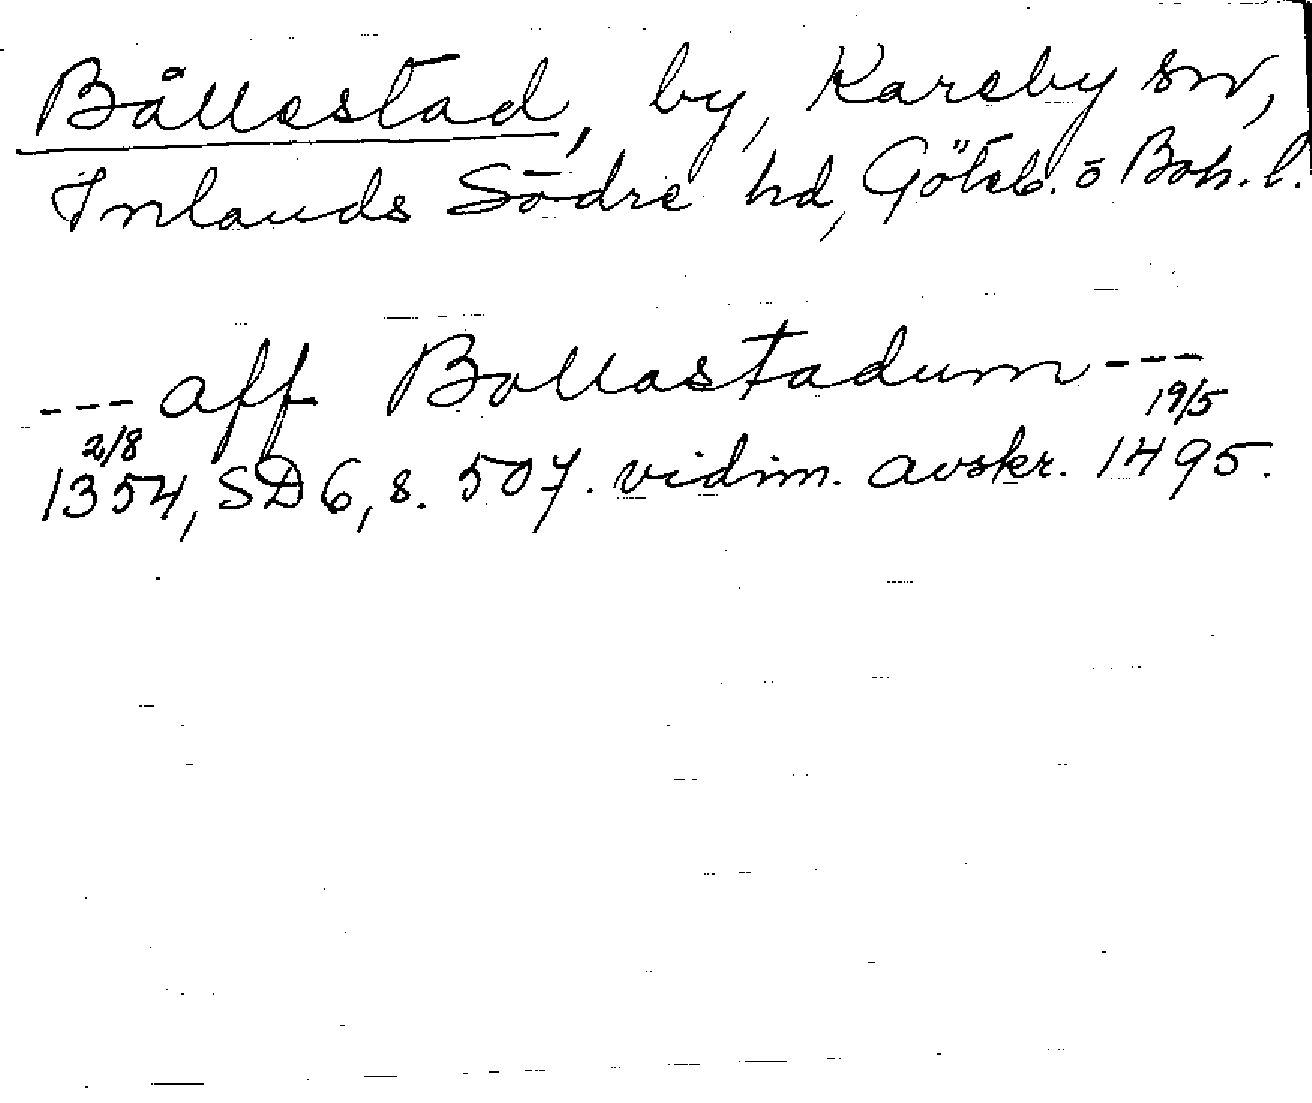 Bållestad, by, Kareby sn,
Inlands Södre hd, Göteb. o Boh. l.
--- aff Bollastadum ---
2/8 19/5
1354, SD 6, s. 507. vidim. avskr. 1495.